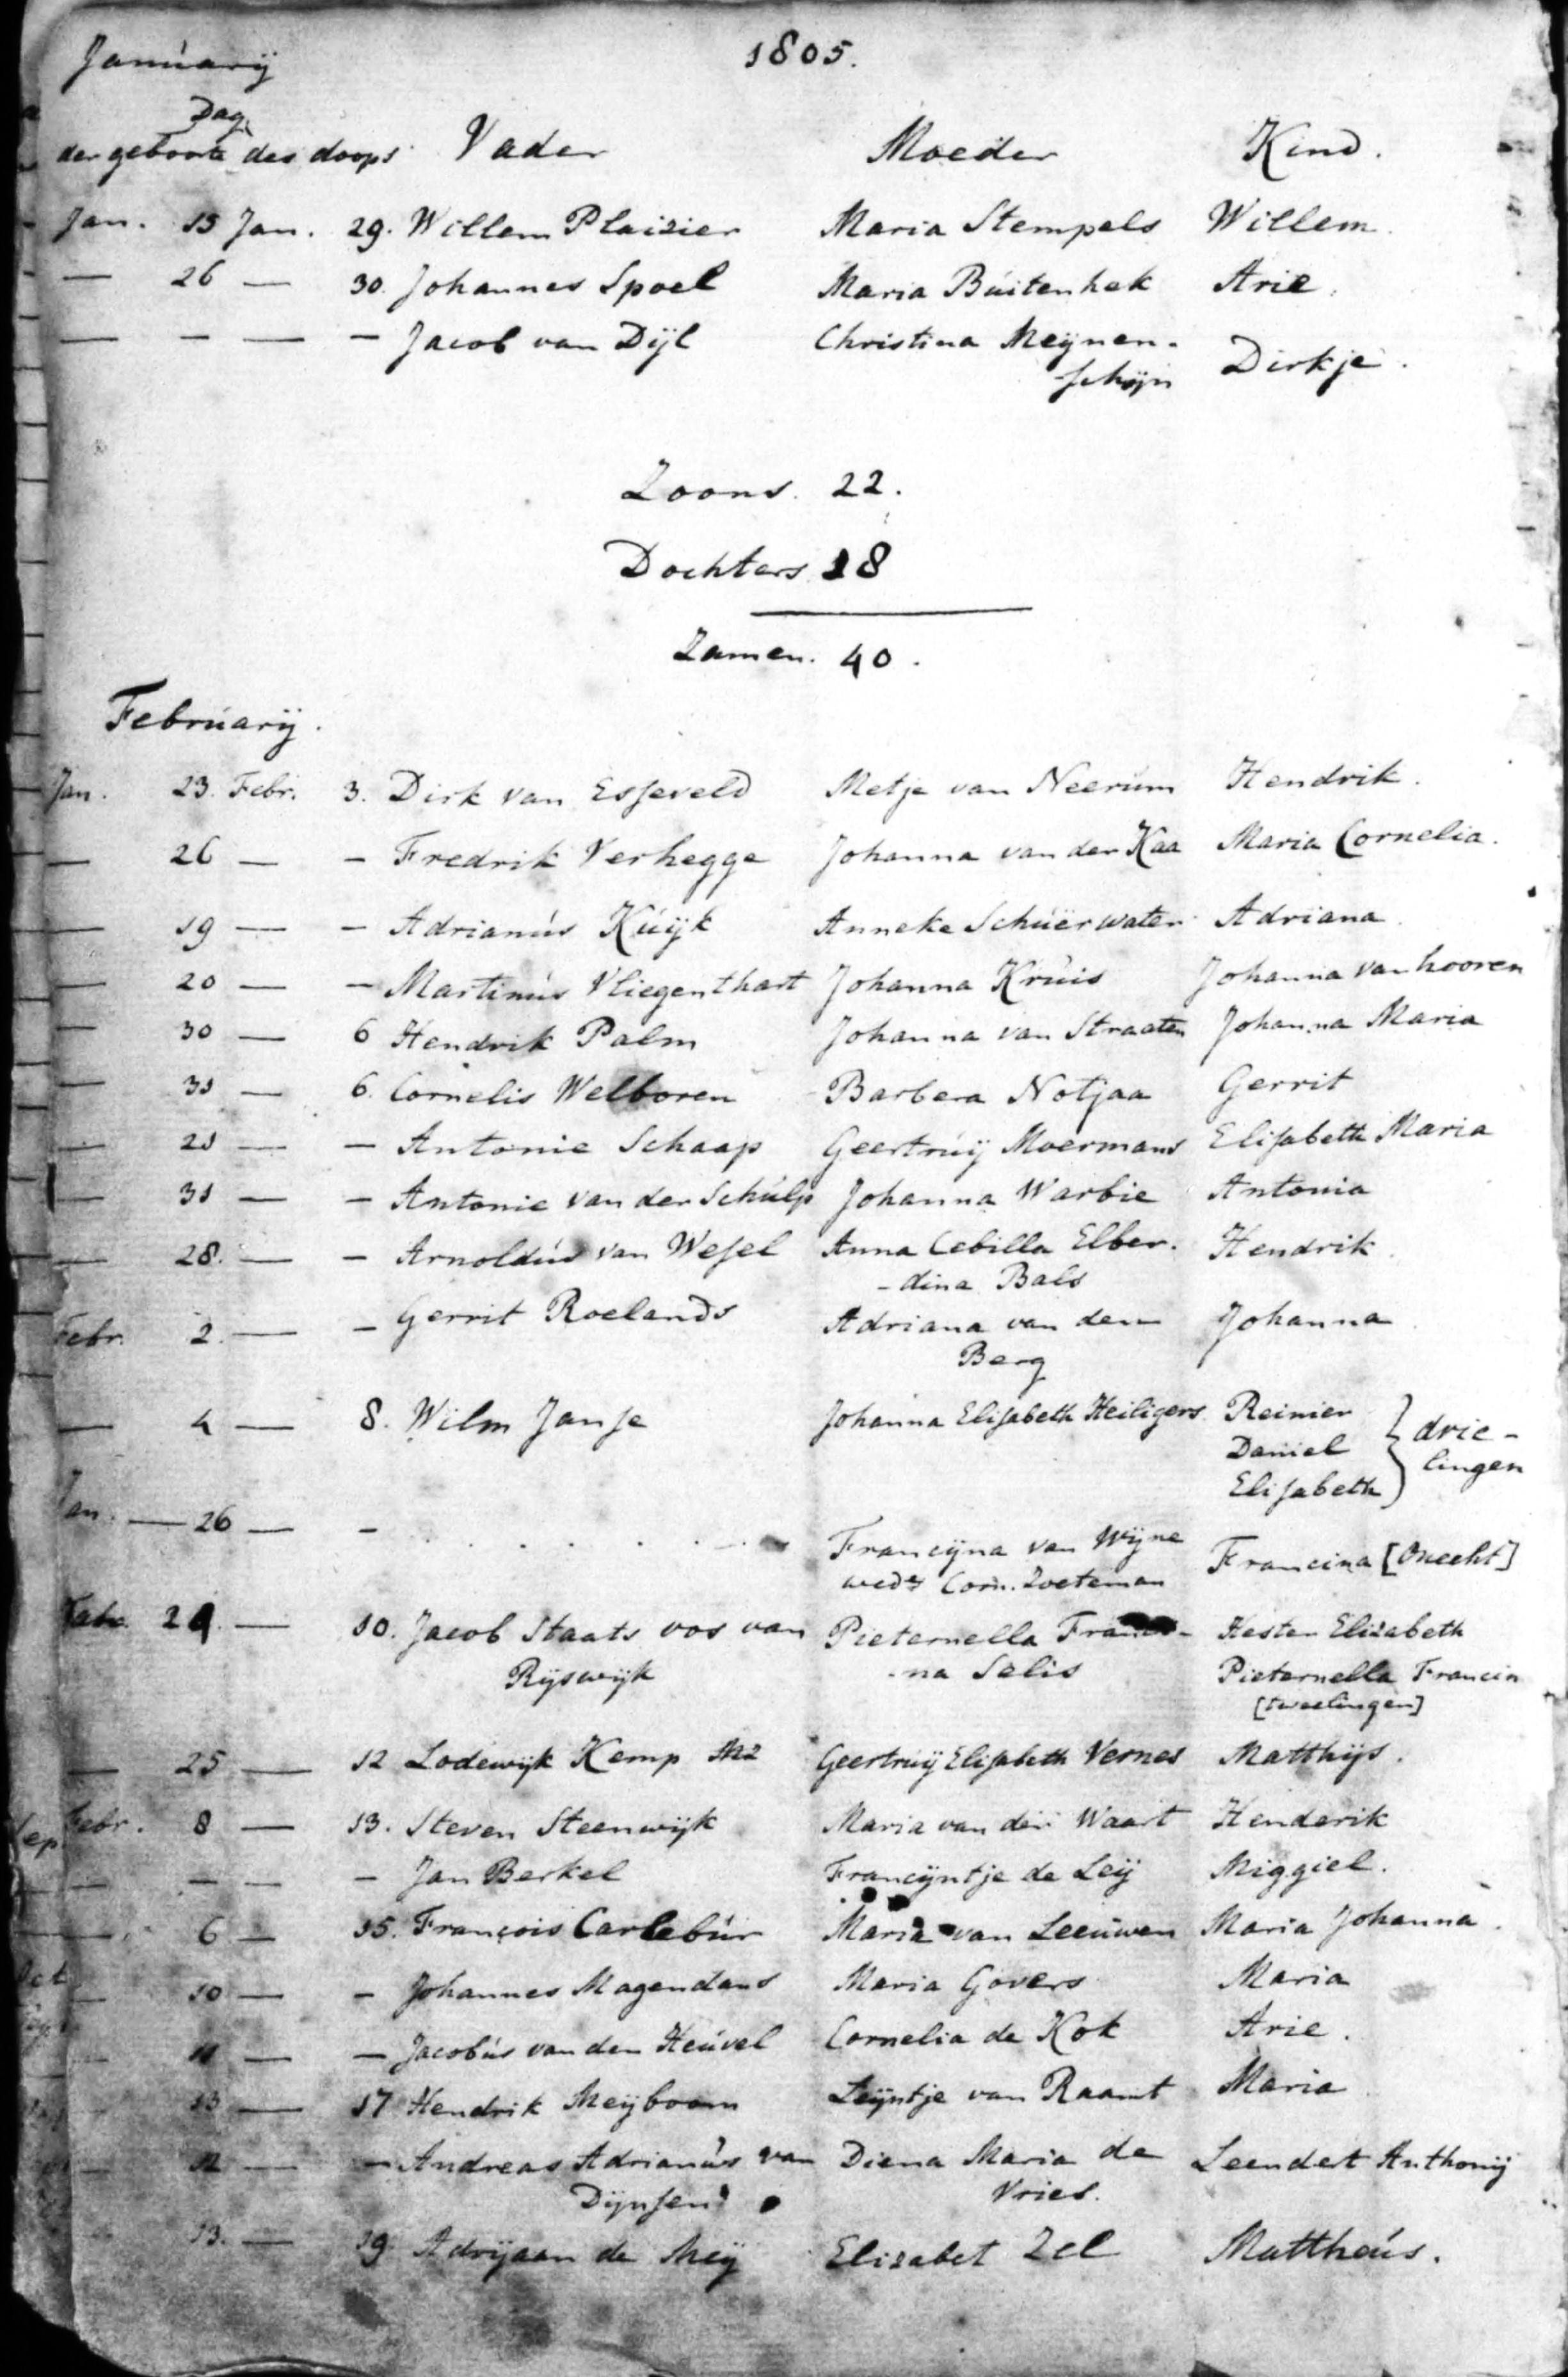 Januarij
1805.
Dag
der geboorte des doops Vader Moeder Kind.
Jan. 15 Jan. 29. Willem Plaizier Maria Stempels Willem.
— 26 — 30. Johannes Spoel Maria Buitenhek Arie.
— — — — Jacob van Dijl Christina Meijnen-
schijn Dirkje.
Zoons. 22.
Dochters 18
Zamen. 40.
Februarij.
Jan. 23. Febr. 3. Dirk van Esseveld Metje van Neerum Hendrik.
— 26 — — Fredrik Verhegge Johanna van der Kaa Maria Cornelia.
— 19 — — Adrianus Kuijk Anneke Schuërwater Adriana
— 20 — — Martinus Vliegenthart Johanna Kruis Johanna van hooren
— 30 — 6 Hendrik Palm Johanna van Straaten Johanna Maria
— 31 — 6. Cornelis Welboren Barbera Notjaa Gerrit
— 21 — — Antonie Schaap Geertruij Moermans Elisabeth Maria
— 31 — — Antonie van der Schulp Johanna Warbie Antonia
— 28. — — Arnoldus van Wesel Anna Cebilla Elber- Hendrik
-dina Bals
Febr. 2. — — Gerrit Roelands Adriana van den Johanna
Berg
— 4 — 8. Wilm Janse Johanna Elisabeth Heiligers Reinier
Daniel } drie-
lingen
Elisabeth
Jan. — 26 — — . . . . . Francijna van Wijne Francina [Onecht]
wede Corn. Zoeteman
29. — 10. Jacob Staats vos van Pieternella Hester Elizabeth
Rijswijk -na Selis Pieternella Francin
[tweelingen]
— 25 — 12 Lodewijk Kemp Mz Geertruij Elisabeth Vernes Matthijs.
Febr. 8 — 13. Steven Steenwijk Maria van der Waart Henderik
— — — — Jan Berkel Francijntje de Leij Miggiel.
— 6 — 15. François Carlebur Maria van Leeuwen Maria Johanna.
— 10 — — Johannes Magendans Maria Govers Maria
— 11 — — Jacobus van den Heuvel Cornelia de Kok Arie.
— 13 — 17 Hendrik Meijboom Leijntje van Raamt Maria
— 12 — — Andreas Adrianus van Diena Maria de Leendert Anthonij
Dijnsen Vries.
13. — 19 Adrijaan de Meij Elizabet Zel Mattheus.